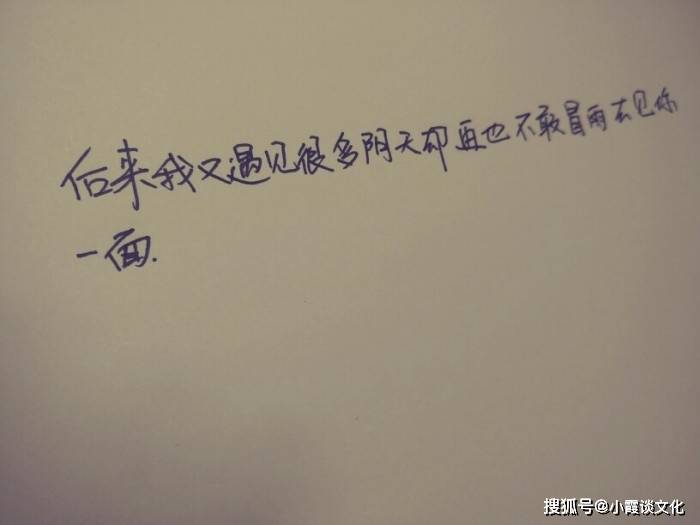 后来我又遇见很多阴天却再也不敢冒雨去见你
一面.
搜狐号@小霞谈文化